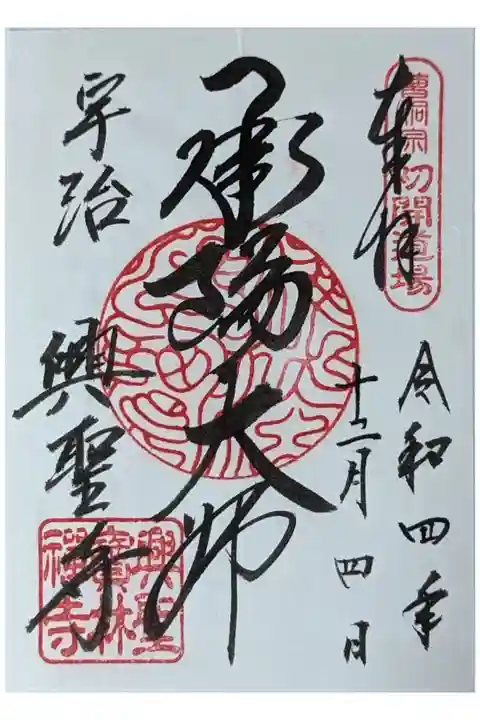 曹洞宗初開道場
奉拝
令和四年
十二月四日
承陽大師
宇治
興聖寺
興聖
寶林
禪寺